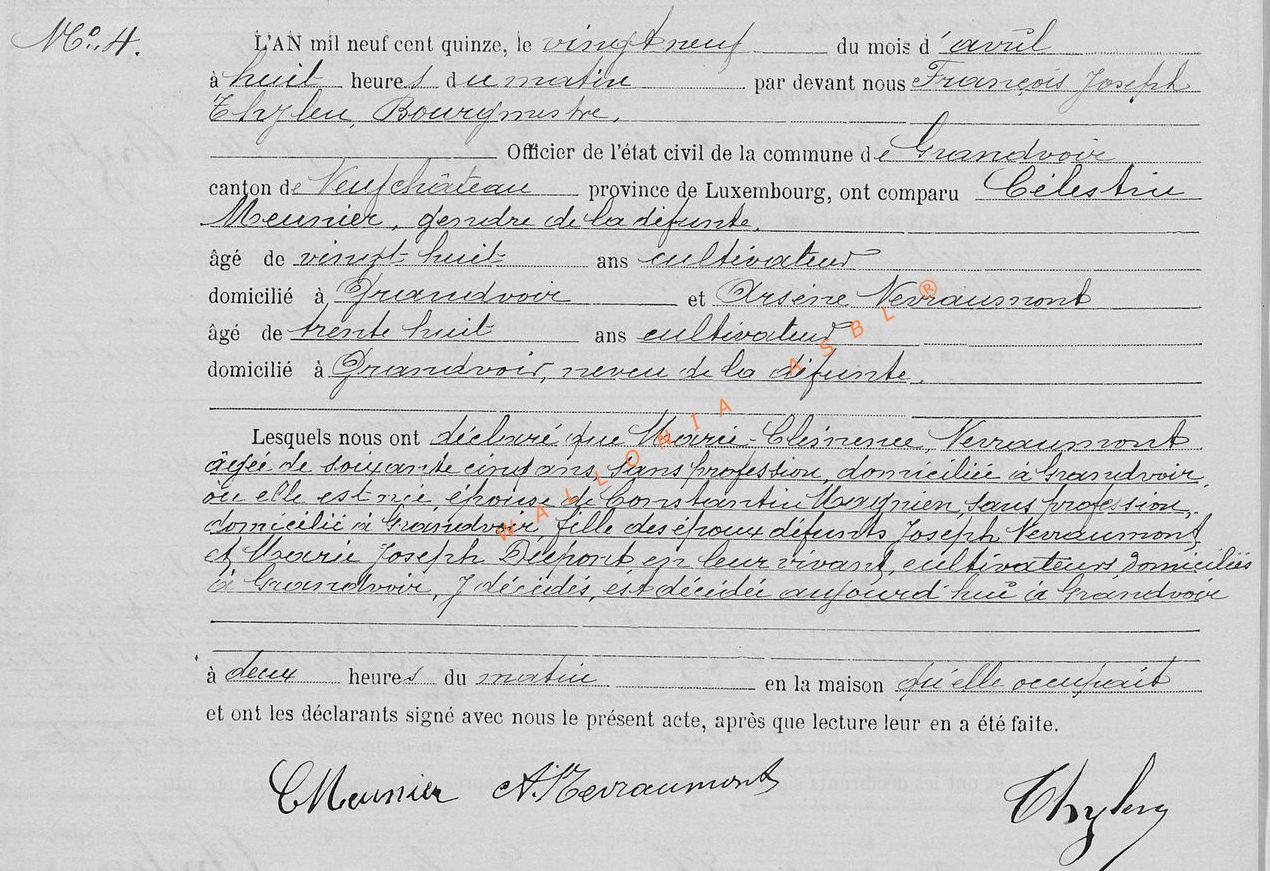 No. 4.
L'AN mil neuf cent quinze, le vingt neuf du mois d'avril
à huit heures du matin par devant nous François Joseph
Bourgmestre.
Officier de l'état civil de la commune de Grandvoir
canton de Neufchâteau province de Luxembourg, ont comparu Célestin
Meunier, gendre de la défunte.
âgé de vingt huit ans cultivateur
domicilié à Grandvoir et Arsène Nevraumont
âgé de trente huit ans cultivateur
domicilié à Grandvoir, neveu de la défunte.
Lesquels nous ont déclaré que Marie-Clémence, Nevraumont
âgée de soixante cinq ans, sans profession, domiciliée à Grandvoir,
où elle est née, épouse de Constantin Magnien, sans profession,
domicilié à Grandvoir, fille des époux défunts Joseph Nevraumont,
et Marie Joseph en leur vivant, cultivateurs domiciliés
à Grandvoir, y décédés, est décédée aujourd'hui à Grandvoir
à deux heures du matin en la maison qu'elle occupait
et ont les déclarants signé avec nous le présent acte, après que lecture leur en a été faite.
CMeunier A. Nevraumont
WALLONIA ASBL ®